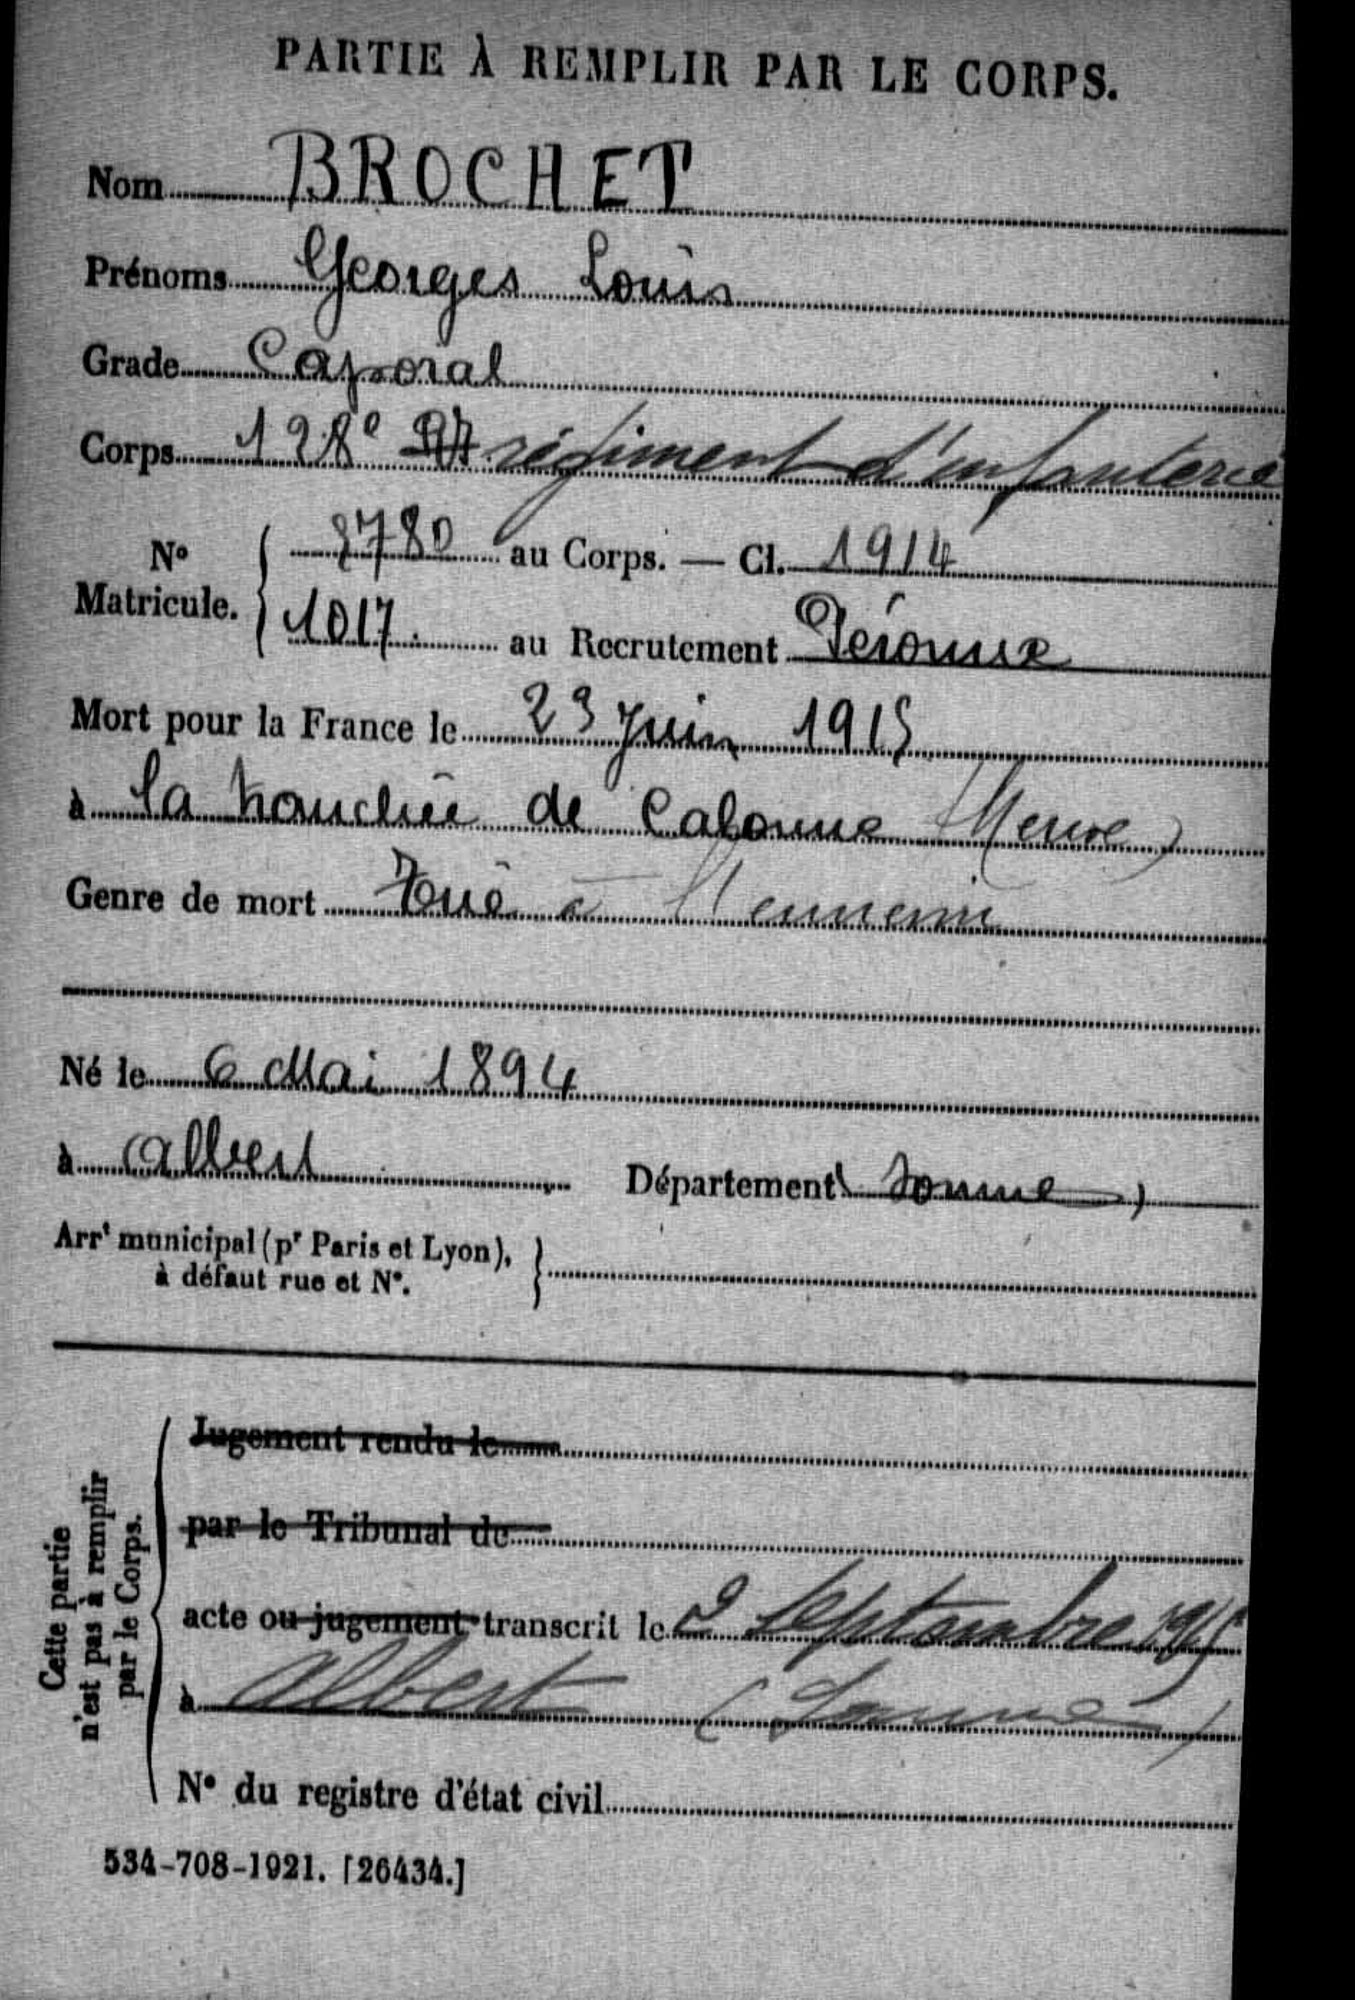 PARTIE À REMPLIR PAR LE CORPS.
Nom BROCHET
Prénoms Georges Louis
Grade Caporal
Corps 128e régiment d'infanterie
N° Matricule. 8780 au Corps. — Cl. 1914
1017. au Recrutement Péronne
Mort pour la France le 23 Juin 1915
à la tranchée de Calonne (Meuse)
Genre de mort Tué à l'ennemi
Né le 6 Mai 1894
à Albert Département (Somme)
Arrt municipal (pr Paris et Lyon),
à défaut rue et N°.
Cette partie
n'est pas à remplir
par le Corps.
Jugement rendu le
par le Tribunal de
acte ou jugement transcrit le 2 Septembre 1915
à Albert (Somme)
N° du registre d'état civil
534-708-1921. [26434.]